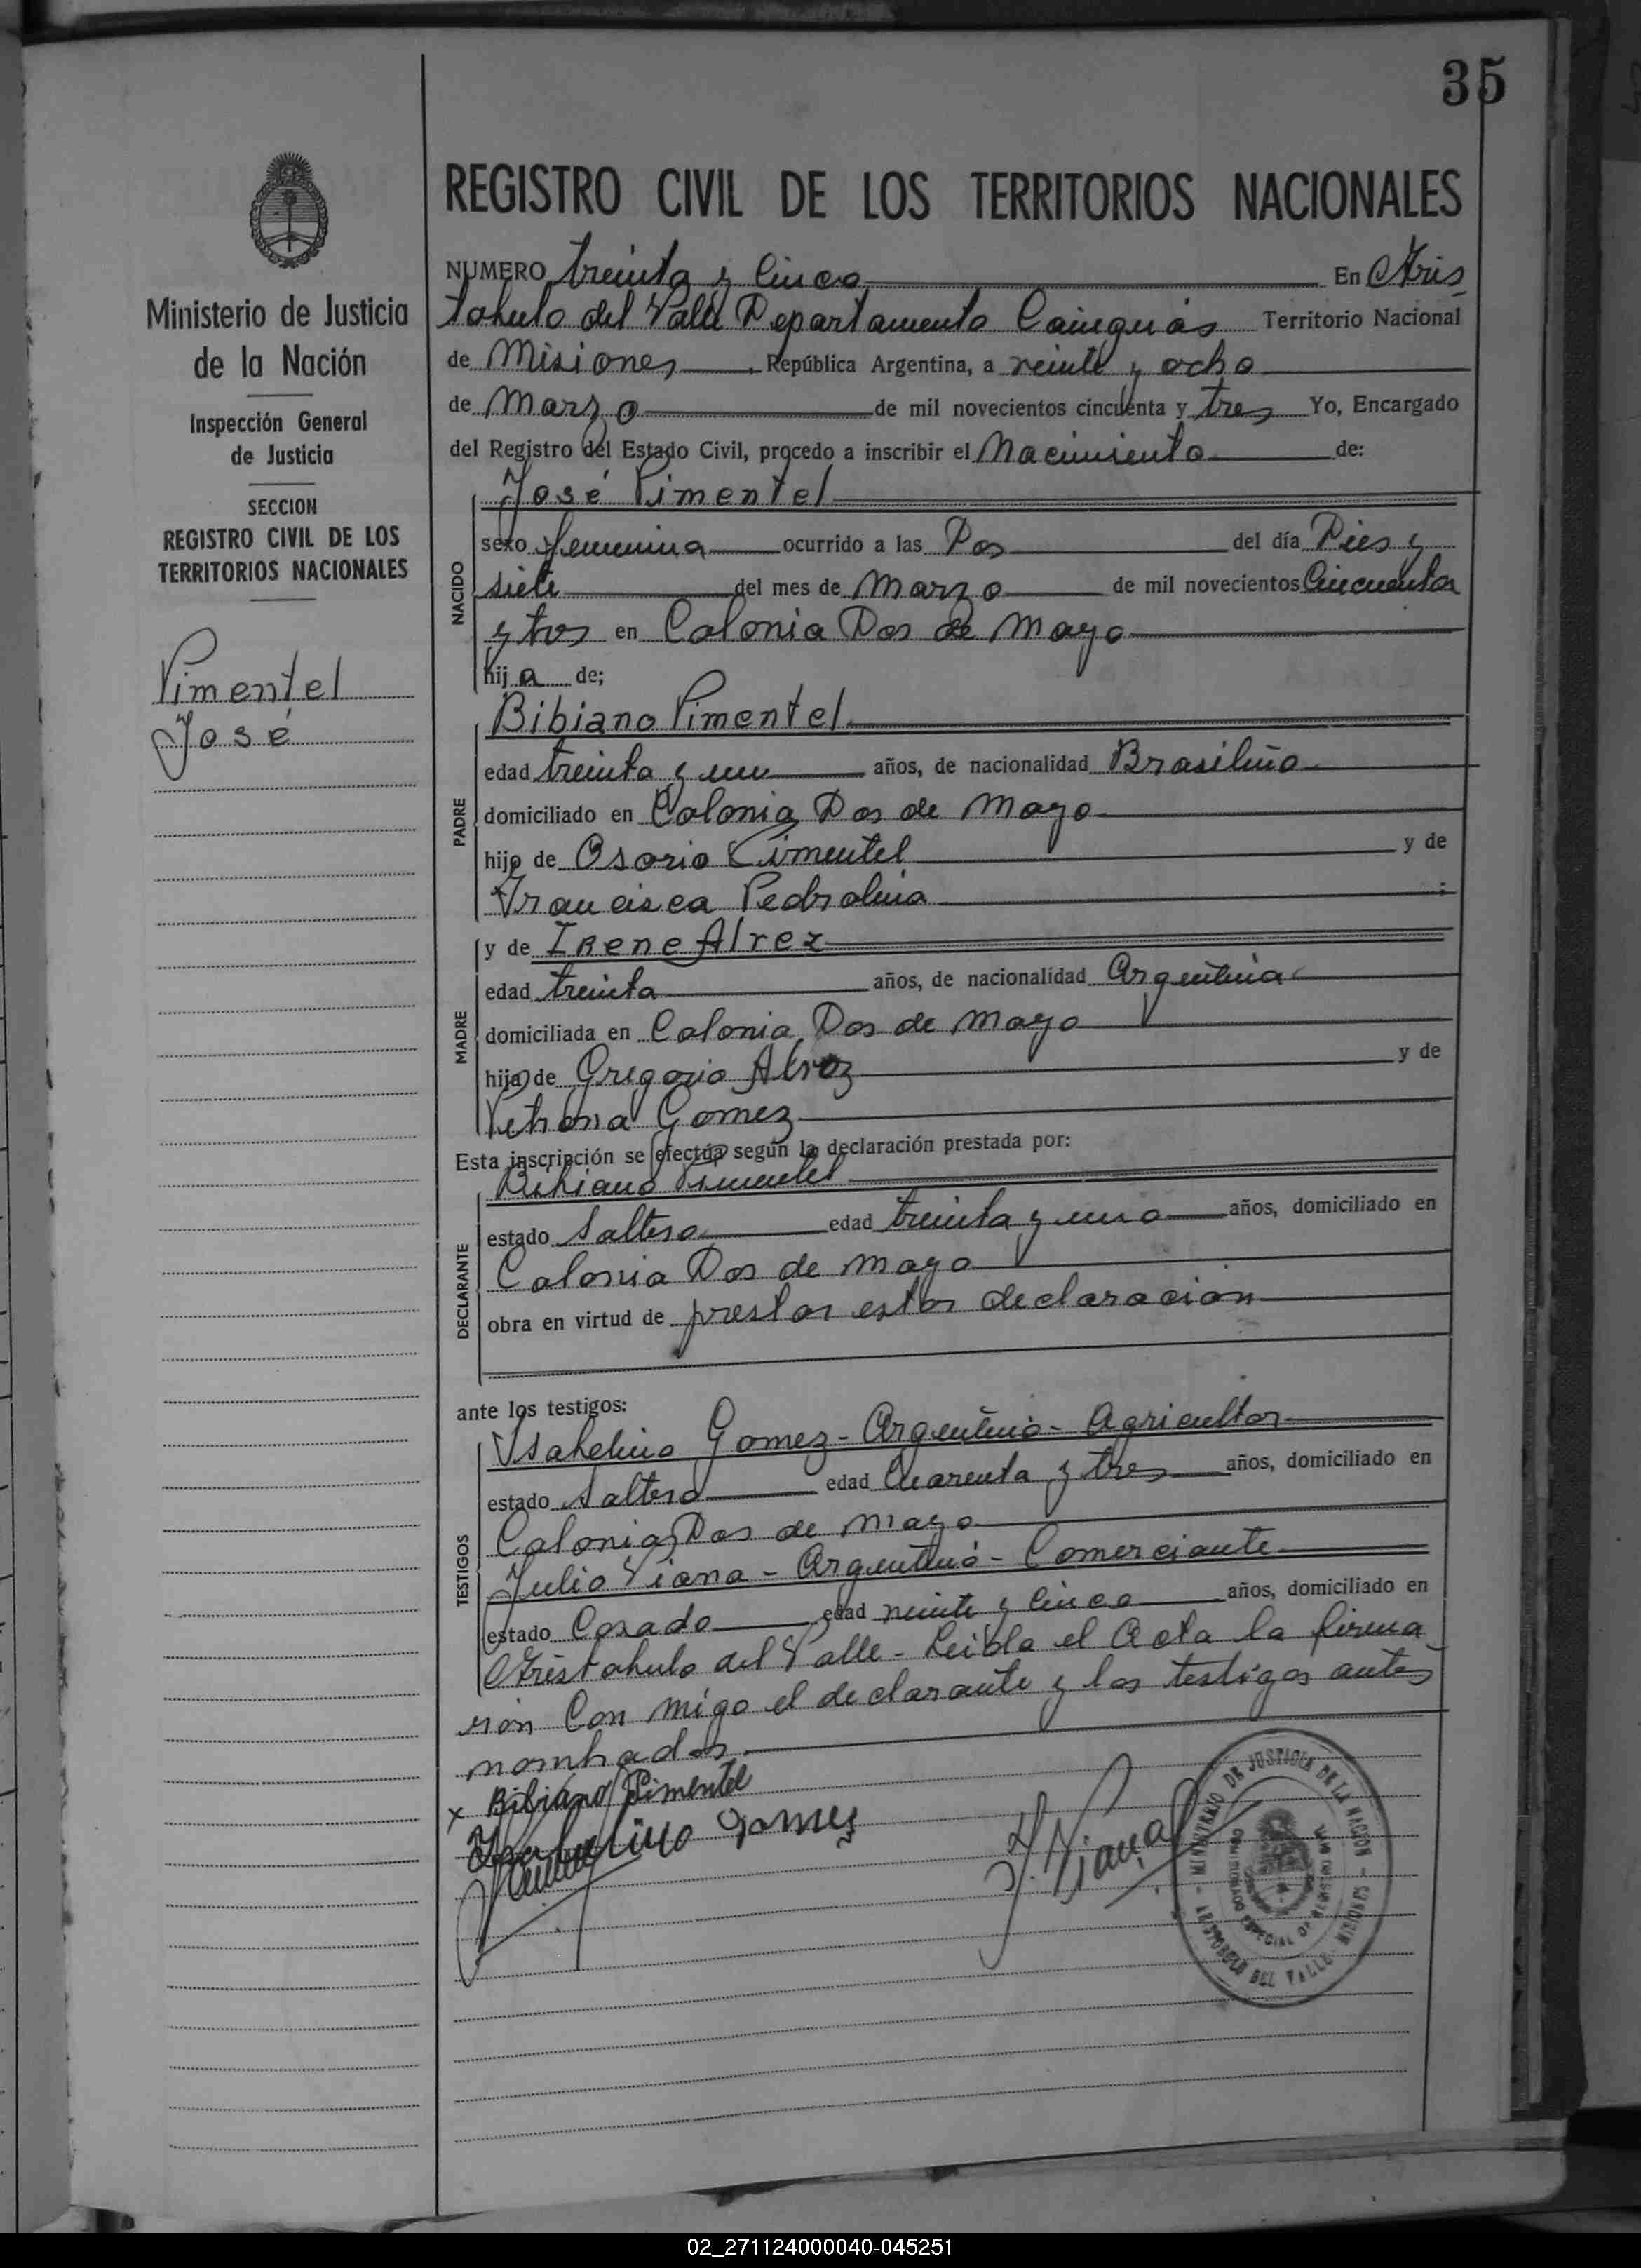 35
REGISTRO CIVIL DE LOS TERRITORIOS NACIONALES
Ministerio de Justicia
de la Nación
Inspección General
de Justicia
SECCION
REGISTRO CIVIL DE LOS
TERRITORIOS NACIONALES
Pimentel
José
NUMERO treinta y Cinco En Aris
tobulo del Valle Departamento Cainguás Territorio Nacional
de Misiones República Argentina, a veinte y ocho
de Marzo de mil novecientos cincuenta y tres Yo, Encargado
del Registro del Estado Civil, procedo a inscribir el Nacimiento de:
José Pimentel
NACIDO
sexo femenina ocurrido a las Dos del día Dies y
siete del mes de Marzo de mil novecientos Cincuenta
y tres en Colonia Dos de Mayo
hij a de;
Bibiano Pimentel
PADRE
edad treinta y un años, de nacionalidad Brasileño
domiciliado en Colonia Dos de Mayo
hijo de Osorio Pimentel y de
Francisca Pedrolina ;
y de IRene Alvez
MADRE
edad treinta años, de nacionalidad Argentina
domiciliada en Colonia Dos de Mayo
hija de Gregorio Alvez y de
Petrona Gomez
Esta inscripción se efectúa según la declaración prestada por:
Bibiano Pimentel
DECLARANTE
estado Soltero edad treinta y uno años, domiciliado en
Colonia Dos de Mayo
obra en virtud de prestar esta declaración
ante los testigos:
TESTIGOS
Ysabelino Gomez - Argentino - Agricultor
estado Soltero edad Cuarenta y tres años, domiciliado en
Colonia Dos de Mayo
Julio Viana - Argentino - Comerciante
estado Casado edad veinte y cinco años, domiciliado en
Aristobulo del Valle - Leida el Acta la firma
ron Con migo el declarante y los testigos antes
nombrados.
x Bibiano Pimentel
Ysabelino Gomes
J. Viana
MINISTERIO DE JUSTICIA DE LA NACION
ARISTOBULO DEL VALLE MISIONES
02_271124000040-045251